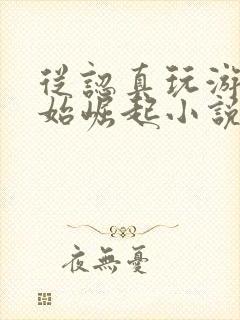 從認真玩游
始崛起小說
夜無憂